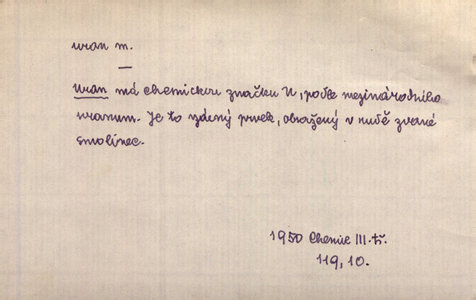 uran m.
—
Uran má chemickou značku U, podle mezinárodního
uranum. Je to vzácný prvek, obsažený v rudě zvané
smolinec.
1950 Chemie III. tř.
119, 10.